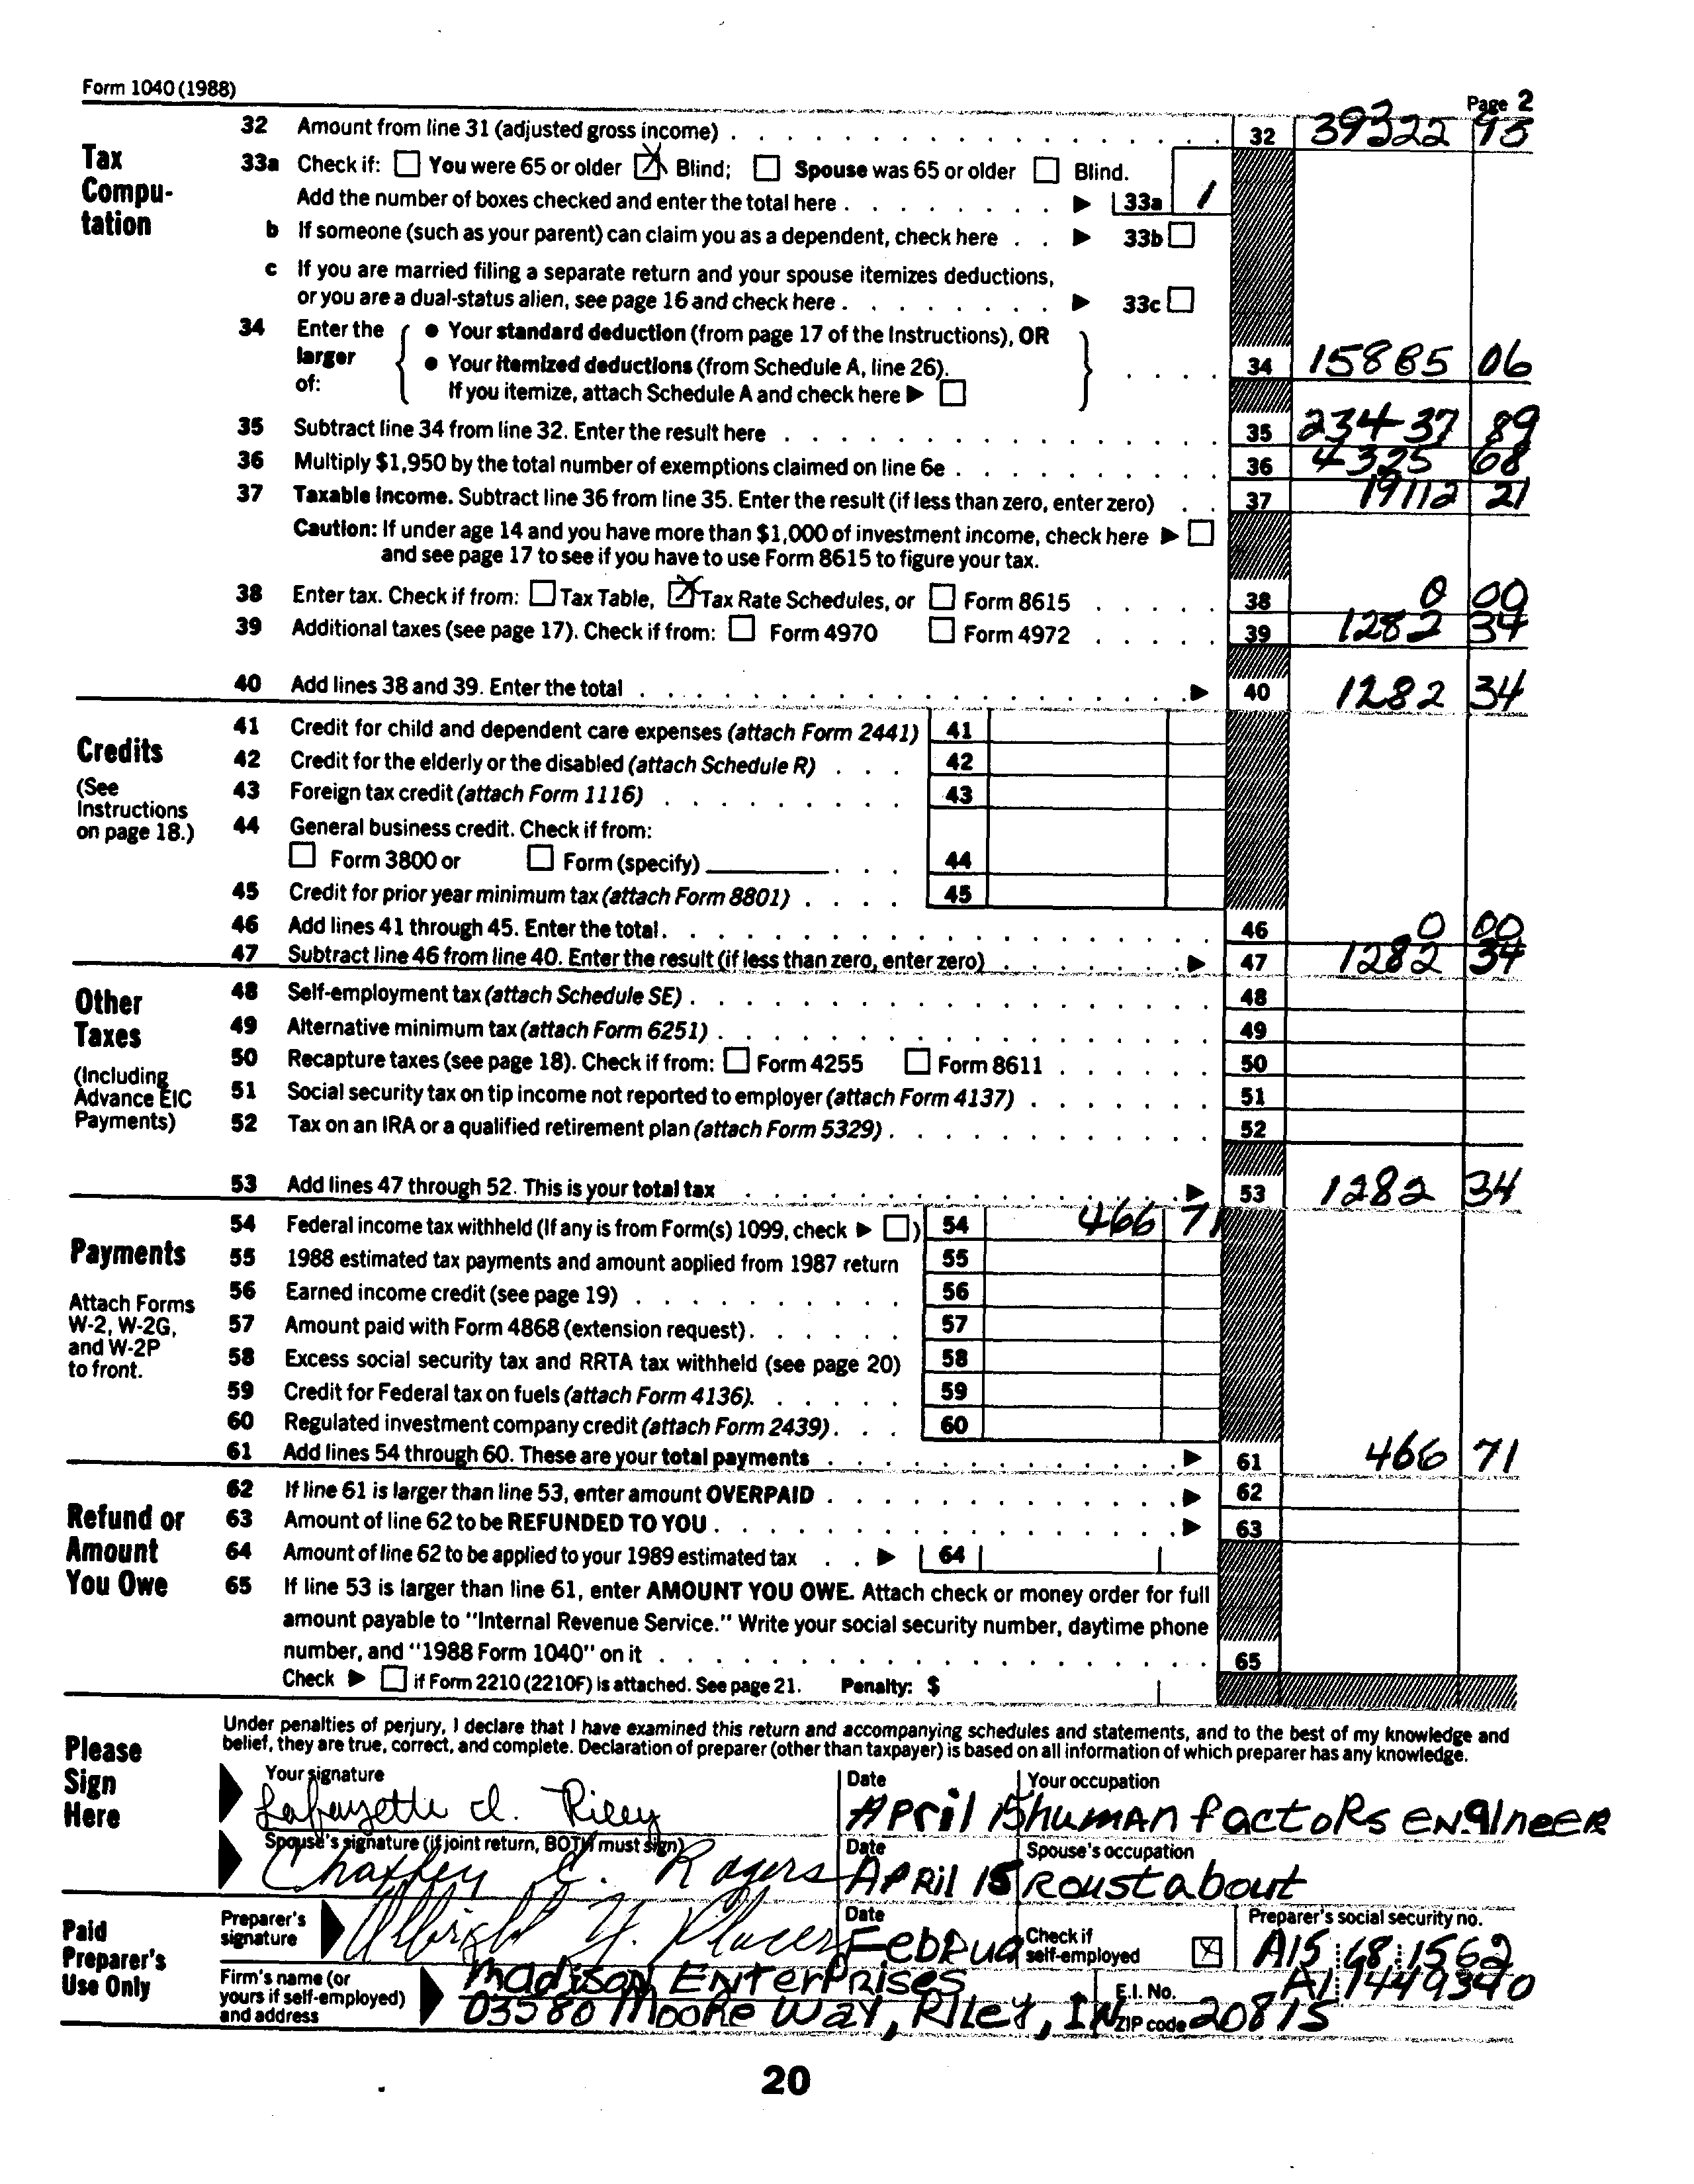 Form 1040 (1988)
Page 2
Tax Compu-tation
32 Amount from line 31 (adjusted gross income) 32 39322 95
33a Check if: You were 65 or older Blind; Spouse was 65 or older Blind.
Add the number of boxes checked and enter the total here 33a 1
b If someone (such as your parent) can claim you as a dependent, check here 33b
c If you are married filing a separate return and your spouse itemizes deductions,
or you are a dual-status alien, see page 16 and check here 33c
34 Enter the larger of: { • Your standard deduction (from page 17 of the Instructions), OR
• Your itemized deductions (from Schedule A, line 26). } 34 15885 06
If you itemize, attach Schedule A and check here
35 Subtract line 34 from line 32. Enter the result here 35 23437 89
36 Multiply $1,950 by the total number of exemptions claimed on line 6e 36 4325 68
37 Taxable income. Subtract line 36 from line 35. Enter the result (if less than zero, enter zero) 37 19112 21
Caution: If under age 14 and you have more than $1,000 of investment income, check here
and see page 17 to see if you have to use Form 8615 to figure your tax.
38 Enter tax. Check if from: Tax Table, Tax Rate Schedules, or Form 8615 38 0 00
39 Additional taxes (see page 17). Check if from: Form 4970 Form 4972 39 1282 34
40 Add lines 38 and 39. Enter the total 40 1282 34
Credits
(See Instructions on page 18.)
41 Credit for child and dependent care expenses (attach Form 2441) 41
42 Credit for the elderly or the disabled (attach Schedule R) 42
43 Foreign tax credit (attach Form 1116) 43
44 General business credit. Check if from:
Form 3800 or Form (specify) 44
45 Credit for prior year minimum tax (attach Form 8801) 45
46 Add lines 41 through 45. Enter the total 46 0 00
47 Subtract line 46 from line 40. Enter the result (if less than zero, enter zero) 47 1282 34
Other Taxes
(Including Advance EIC Payments)
48 Self-employment tax (attach Schedule SE) 48
49 Alternative minimum tax (attach Form 6251) 49
50 Recapture taxes (see page 18). Check if from: Form 4255 Form 8611 50
51 Social security tax on tip income not reported to employer (attach Form 4137) 51
52 Tax on an IRA or a qualified retirement plan (attach Form 5329) 52
53 Add lines 47 through 52. This is your total tax 53 1282 34
Payments
Attach Forms W-2, W-2G, and W-2P to front.
54 Federal income tax withheld (If any is from Form(s) 1099, check ) 54 466 71
55 1988 estimated tax payments and amount applied from 1987 return 55
56 Earned income credit (see page 19) 56
57 Amount paid with Form 4868 (extension request) 57
58 Excess social security tax and RRTA tax withheld (see page 20) 58
59 Credit for Federal tax on fuels (attach Form 4136) 59
60 Regulated investment company credit (attach Form 2439) 60
61 Add lines 54 through 60. These are your total payments 61 466 71
Refund or Amount You Owe
62 If line 61 is larger than line 53, enter amount OVERPAID 62
63 Amount of line 62 to be REFUNDED TO YOU 63
64 Amount of line 62 to be applied to your 1989 estimated tax 64
65 If line 53 is larger than line 61, enter AMOUNT YOU OWE. Attach check or money order for full
amount payable to "Internal Revenue Service." Write your social security number, daytime phone
number, and "1988 Form 1040" on it 65
Check if Form 2210 (2210F) is attached. See page 21. Penalty: $
Please Sign Here
Under penalties of perjury, I declare that I have examined this return and accompanying schedules and statements, and to the best of my knowledge and
belief, they are true, correct, and complete. Declaration of preparer (other than taxpayer) is based on all information of which preparer has any knowledge.
Your signature Date Your occupation
Lafayette d. Riley April 15 human factors engineer
Spouse's signature (if joint return, BOTH must sign) Date Spouse's occupation
Chaffey C. Rogers April 15 Roustabout
Paid Preparer's Use Only
Preparer's signature Albright Y. Placer Date Februa Check if self-employed Preparer's social security no. A15 68 1562
Firm's name (or yours if self-employed) and address Madison Enterprises E.I. No. A17449390
03580 Moore Way, Riley, IN ZIP code 20815
20